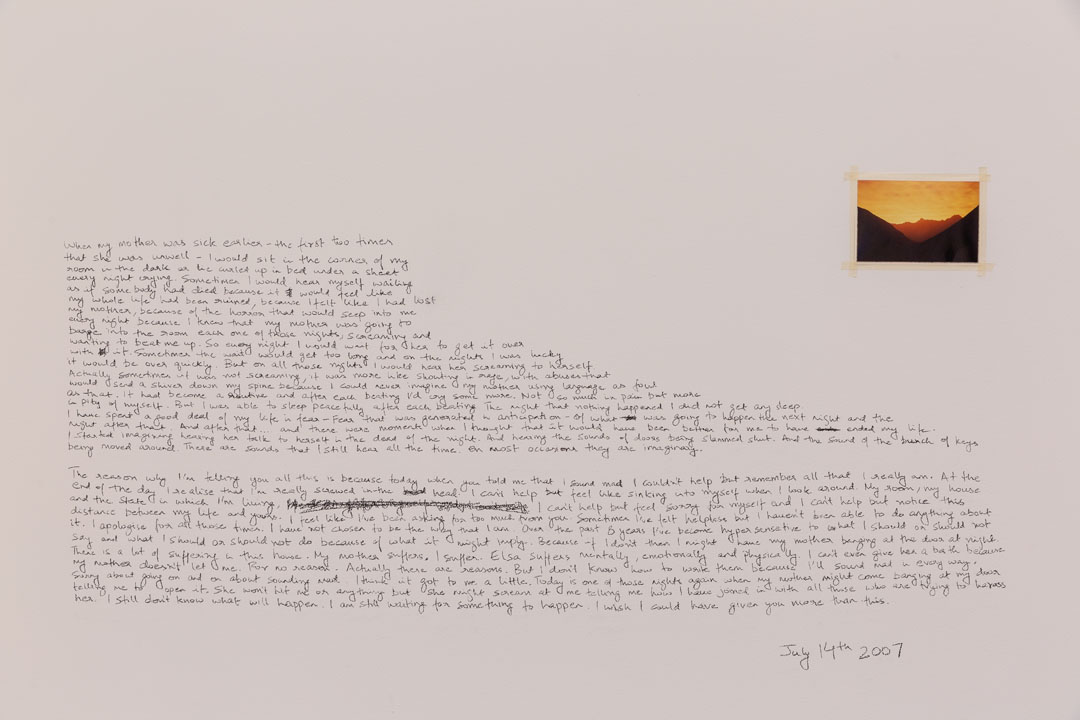 When my mother was sick earlier - the first two times
that she was unwell - I would sit in the corner of my
room in the dark or lie curled up in bed under a sheet
every night crying. Sometimes I would hear myself wailing
as if somebody had died because it would feel like
my whole life had been ruined, because I felt like I had lost
my mother, because of the horror that would seep into me
every night because I knew that my mother was going to
barge into the room each one of those nights, screaming and
wanting to beat me up. So every night I would wait for her to get it over
with it. Sometimes the wait would get too long and on the nights I was lucky
it would be over quickly. But on all those nights I would hear her screaming to herself
Actually sometimes it was not screaming, it was more like shouting in rage, with abuses that
would send a shiver down my spine because I could never imagine my mother using language as foul
as that. It had become a routine and after each beating I'd cry some more. Not so much in pain but more
in pity of myself. But I was able to sleep peacefully after each beating. The night that nothing happened I did not get any sleep.
I have spent a good deal of my life in fear - Fear that was generated in anticipation - of what was going to happen the next night and the
night after that. And after that... and there were moments when I thought that it would have been better for me to have ended my life.
I started imagining hearing her talk to herself in the dead of the night. And hearing the sounds of doors being slammed shut. And the sound of the bunch of keys
being moved around. These are sounds that I still hear all the time. On most occasions they are imaginary.
The reason why I'm telling you all this is because today when you told me that I sound mad I couldn't help but remember all that I really am. At the
end of the day I realise that I'm really screwed in the head. I can't help but feel like sinking into myself when I look around. My room, my house
and the state in which I'm living. I can't help but feel sorry for myself and I can't help but notice this
distance between my life and yours. I feel like I've been asking for too much from you. Sometimes I've felt helpless but I haven't been able to do anything about
it. I apologise for all those times. I have not chosen to be the way that I am. Over the past 6 years I've become hypersensitive to what I should or should not
say and what I should or should not do because of what it might imply. Because if I don't then I might have my mother banging at the door at night.
There is a lot of suffering in this house. My mother suffers. I suffer. Elsa suffers mentally, emotionally and physically. I can't even give her a bath because
my mother doesn't let me. For no reason. Actually there are reasons. But I don't know how to write them because I'll sound mad in every way.
Sorry about going on and on about sounding mad. I think it got to me a little. Today is one of those nights again when my mother might come banging at my door
telling me to open it. She won't hit me or anything but she might scream at me telling me how I have joined in with all those who are trying to harass
her. I still don't know what will happen. I am still waiting for something to happen. I wish I could have given you more than this.
July 14th 2007